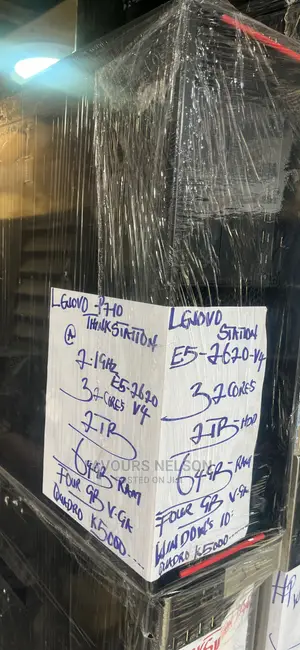 LENOVO -P710
THINKSTATION
@
2.1GHz
E5-2620
32 CORES V4
2TB
64GB-RAM
FOUR GB V-GA
QUADRO K5000....
LENOVO
STATION
E5-2620-V4
32 CORES
2TB-HDD
64GB-RAM
FOUR GB V-GA
WINDOWS 10:
QUADRO K5000....
FAVOURS NELSON
POSTED ON JIJI